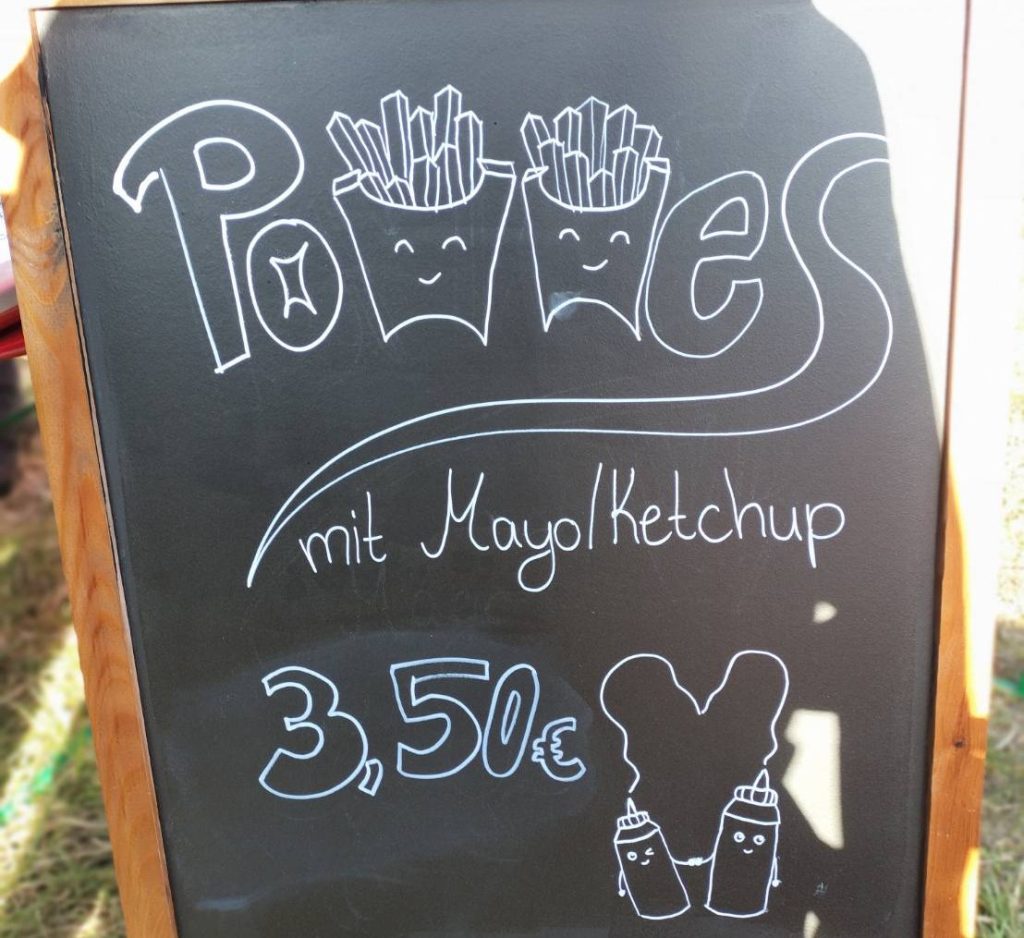 Pommes
mit Mayo/Ketchup
3,50€